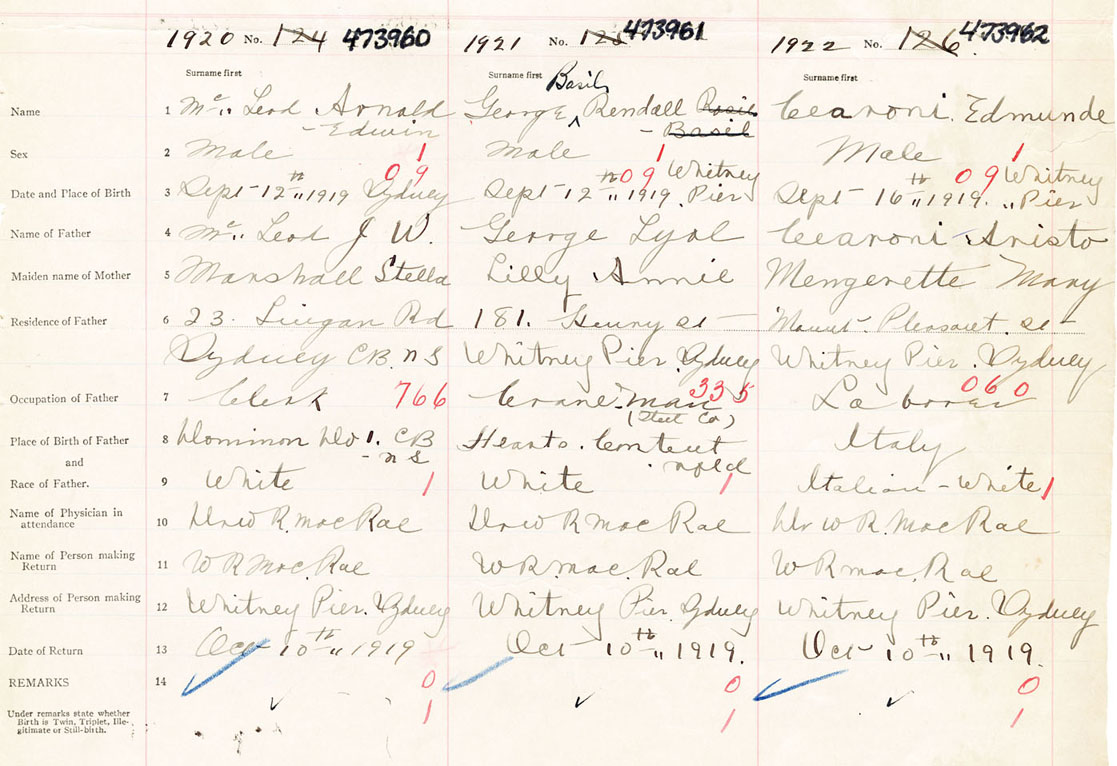 1920 No. 124 473960 1921 No. 125 473961 1922 No. 126 473962
Surname first Surname first Basil Surname first
Name 1 Mc Leod Arnold George Rendall Basil Cearoni Edmunde
- Edwin - Basil
Sex 2 Male 1 Male 1 Male 1
09 09 Whitney 09 Whitney
Date and Place of Birth 3 Sept - 12th " 1919 Sydney Sept 12th " 1919. Pier Sept - 16th " 1919. " Pier
Name of Father 4 Mc Leod J W. George Lyal Cearoni Aristo
Maiden name of Mother 5 Marshall Stella Lilly Annie Mengerette Mary
Residence of Father 6 23. Lingan Rd 181. Henry St - Mount Pleasant. St -
Sydney CB. N S Whitney Pier. Sydney Whitney Pier. Sydney
Occupation of Father 7 Clerk 766 Crane man 335 Laborer 060
(Steel Co)
Place of Birth of Father 8 Dominion No 1. CB Hearts. Content Italy
and - N S . Nfld
Race of Father. 9 White 1 White 1 Italian - White 1
Name of Physician in
attendance 10 Dr W R. MacRae Dr W R MacRae Dr W R. MacRae
Name of Person making
Return 11 W R MacRae W R. Mac. Rae W R Mac. Rae
Address of Person making
Return 12 Whitney Pier. Sydney Whitney Pier. Sydney Whitney Pier. Sydney
Date of Return 13 Oct 10th " 1919 Oct - 10th " 1919. Oct - 10th " 1919.
REMARKS 14 0 0 0
Under remarks state whether
Birth is Twin, Triplet, Ille-
gitimate or Still-birth. 1 1 1